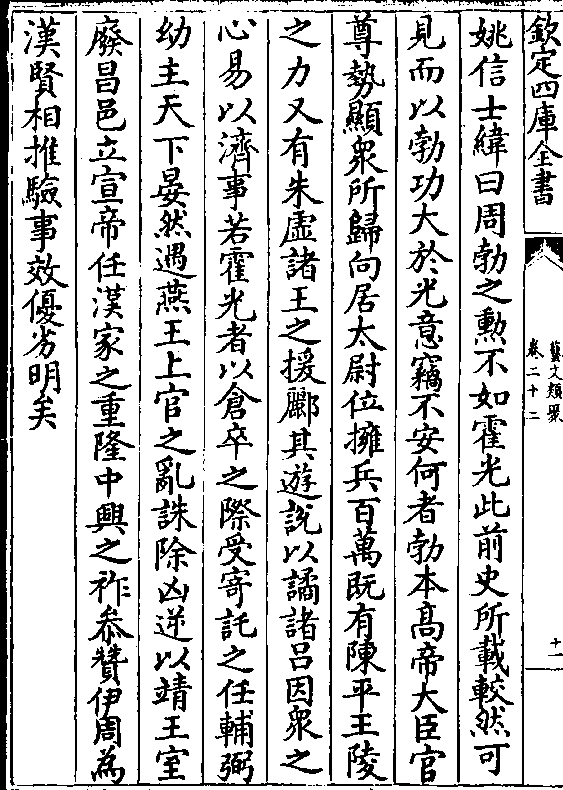 欽定四庫全書
藝文類聚
卷二十二
十一
姚信士緯曰周勃之勲不如霍光此前史所載較然可
見而以勃功大於光意竊不安何者勃本高帝大臣官
尊勢顯衆所歸向居太尉位擁兵百萬既有陳平王陵
之力又有朱虚諸王之援酈其遊說以譎諸吕因衆之
心易以濟事若霍光者以倉卒之際受寄託之任輔弼
幼主天下晏然遇燕王上官之亂誅除凶逆以靖王室
廢昌邑立宣帝任漢家之重隆中興之祚參贊伊周為
漢賢相推驗事效優劣明矣